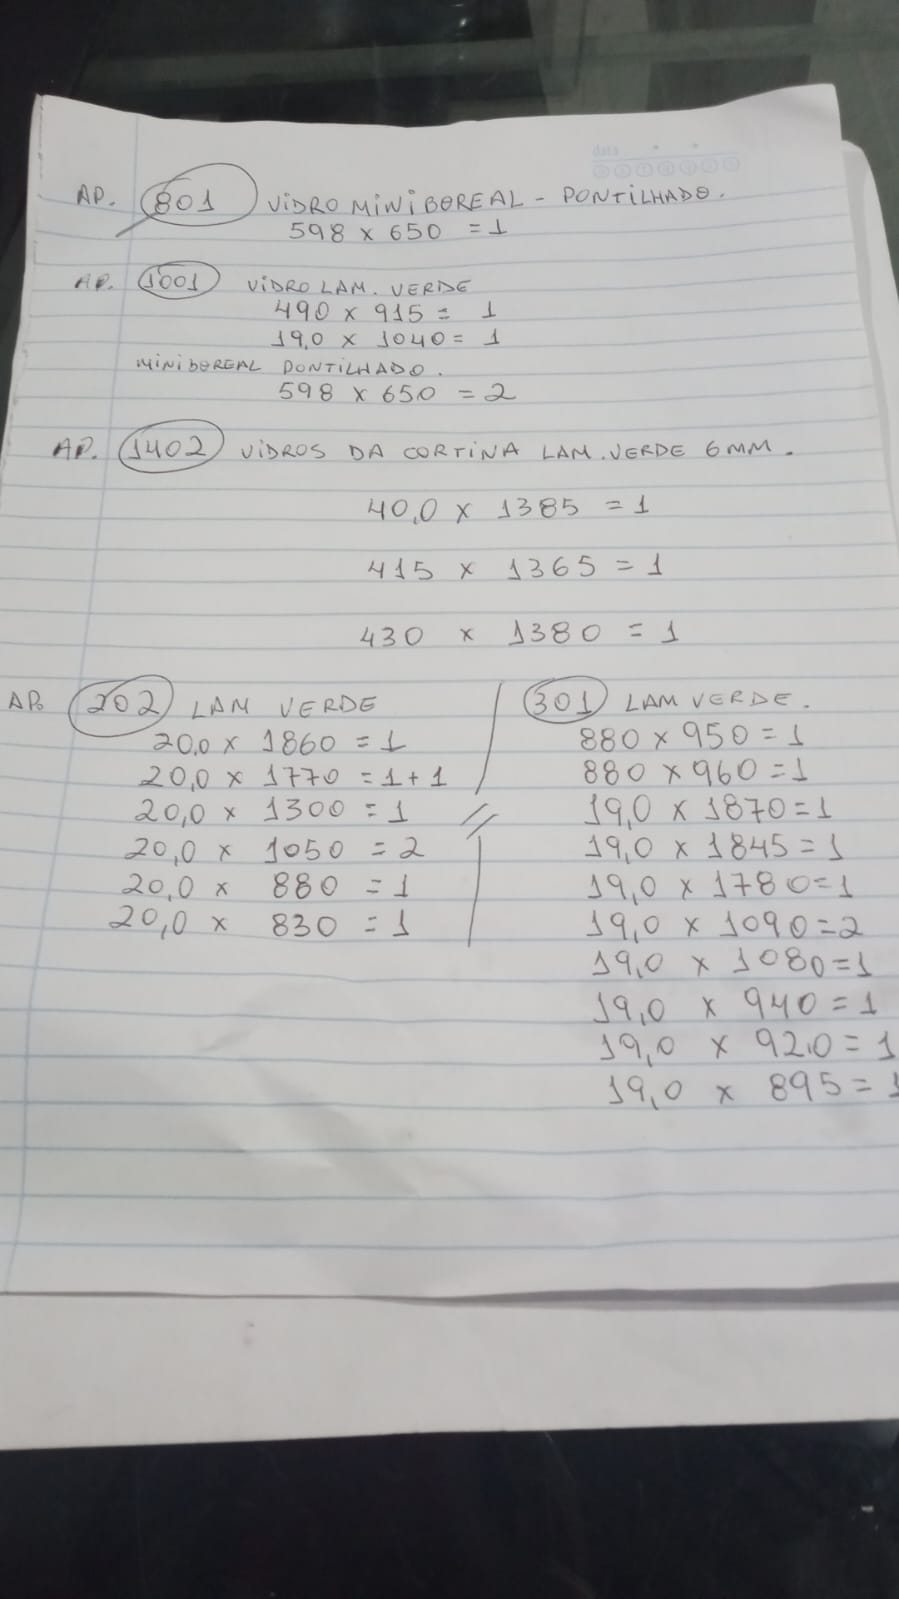 data
AP. 801 VIDRO MINIBOREAL - PONTILHADO.
598 x 650 = 1
AP. 1001 VIDRO LAM. VERDE
490 x 915 = 1
19,0 x 1040 = 1
MINIBOREAL PONTILHADO.
598 x 650 = 2
AP. 1402 VIDROS DA CORTINA LAM. VERDE 6MM.
40,0 x 1385 = 1
415 x 1365 = 1
430 x 1380 = 1
AP. 202 LAM VERDE
20,0 x 1860 = 1
20,0 x 1770 = 1 + 1
20,0 x 1300 = 1
20,0 x 1050 = 2
20,0 x 880 = 1
20,0 x 830 = 1
301 LAM VERDE.
880 x 950 = 1
880 x 960 = 1
19,0 x 1870 = 1
19,0 x 1845 = 1
19,0 x 1780 = 1
19,0 x 1090 = 2
19,0 x 1080 = 1
19,0 x 940 = 1
19,0 x 92,0 = 1
19,0 x 895 = 1